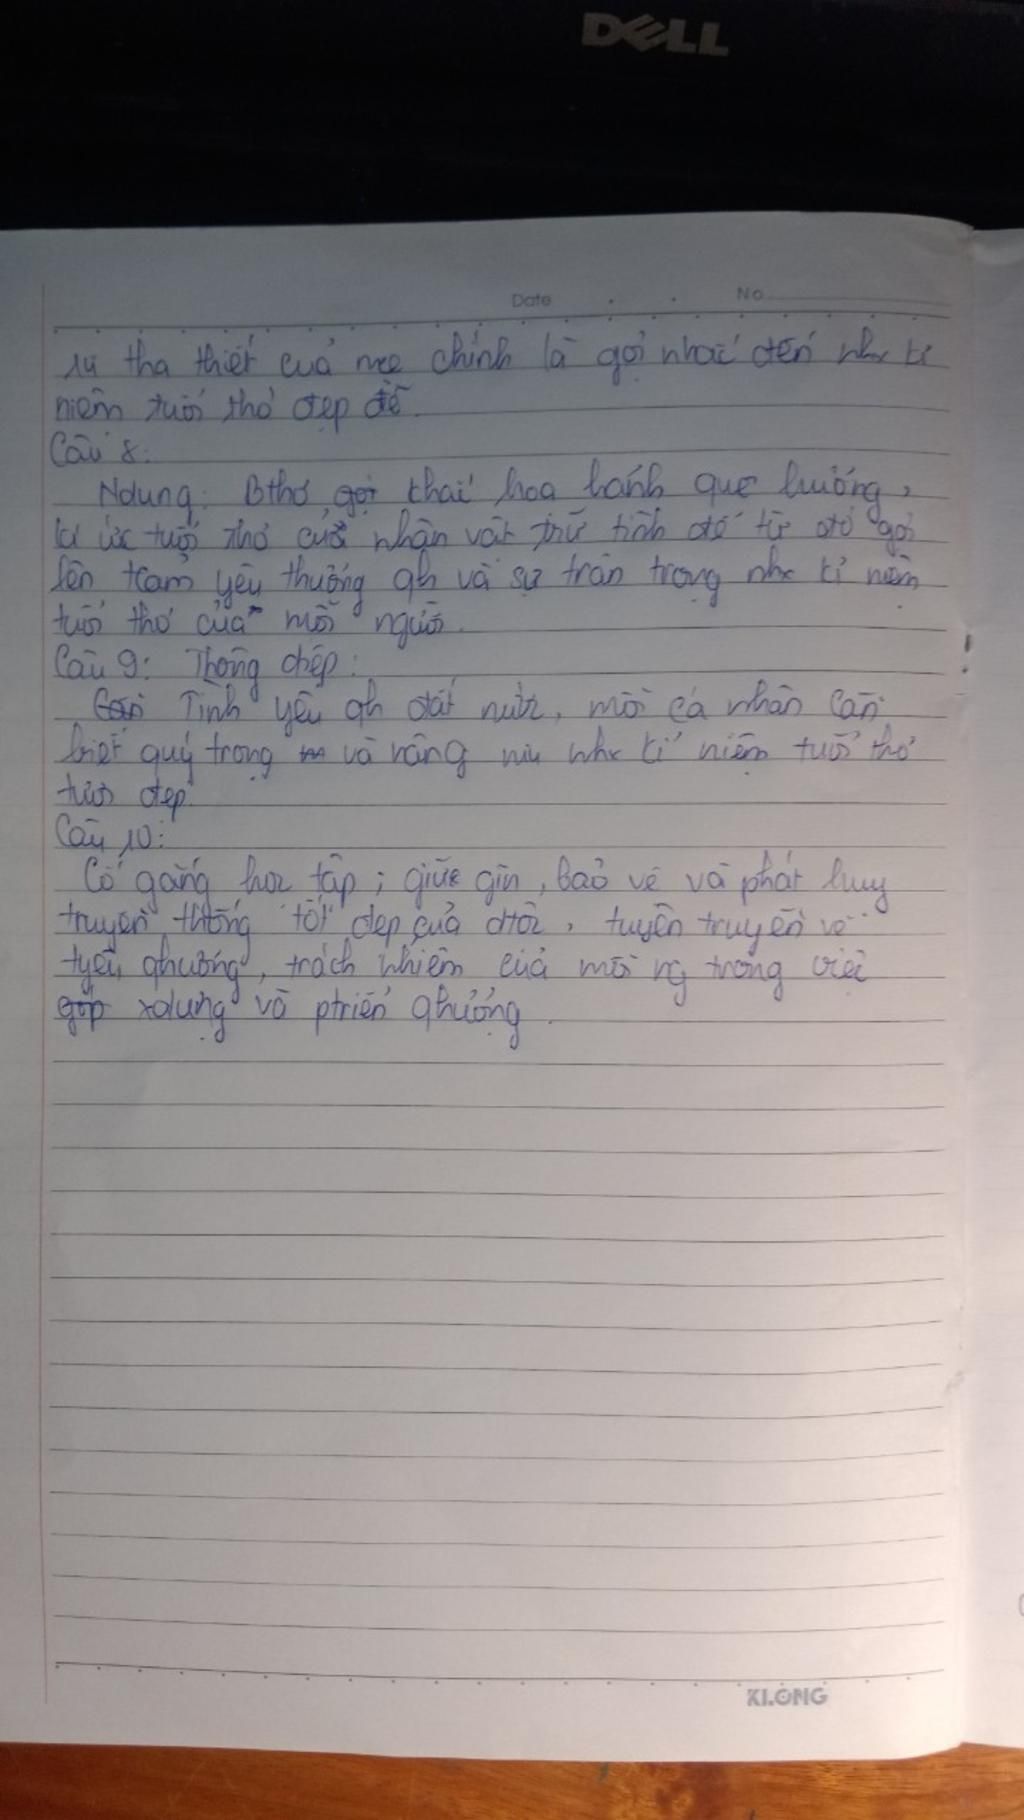 DELL
Date . . No
tha thiết của mẹ chính là gợi nhắc đến kỉ
niệm tuổi thơ đẹp đẽ.
Câu 8:
Ndung: Bthơ gợi khai hoa hành que hương,
kí ức tuổi thơ của nhân vật trữ tình để từ đó gợi
lên t.cảm yêu thương qh và sự trân trọng kỉ niệm
tuổi thơ của mỗi người.
Câu 9: Thông điệp:
Tình yêu qh đất nước, mỗi cá nhân cần
biết quý trọng và nâng niu kỉ niệm tuổi thơ
tươi đẹp.
Câu 10:
Cố gắng học tập; giữ gìn, bảo vệ và phát huy
truyền thống tốt đẹp của , tuyên truyền về
tyêu qhương, trách nhiệm của mỗi ng trong việc
góp xdựng và ptriển qhương.
KLONG